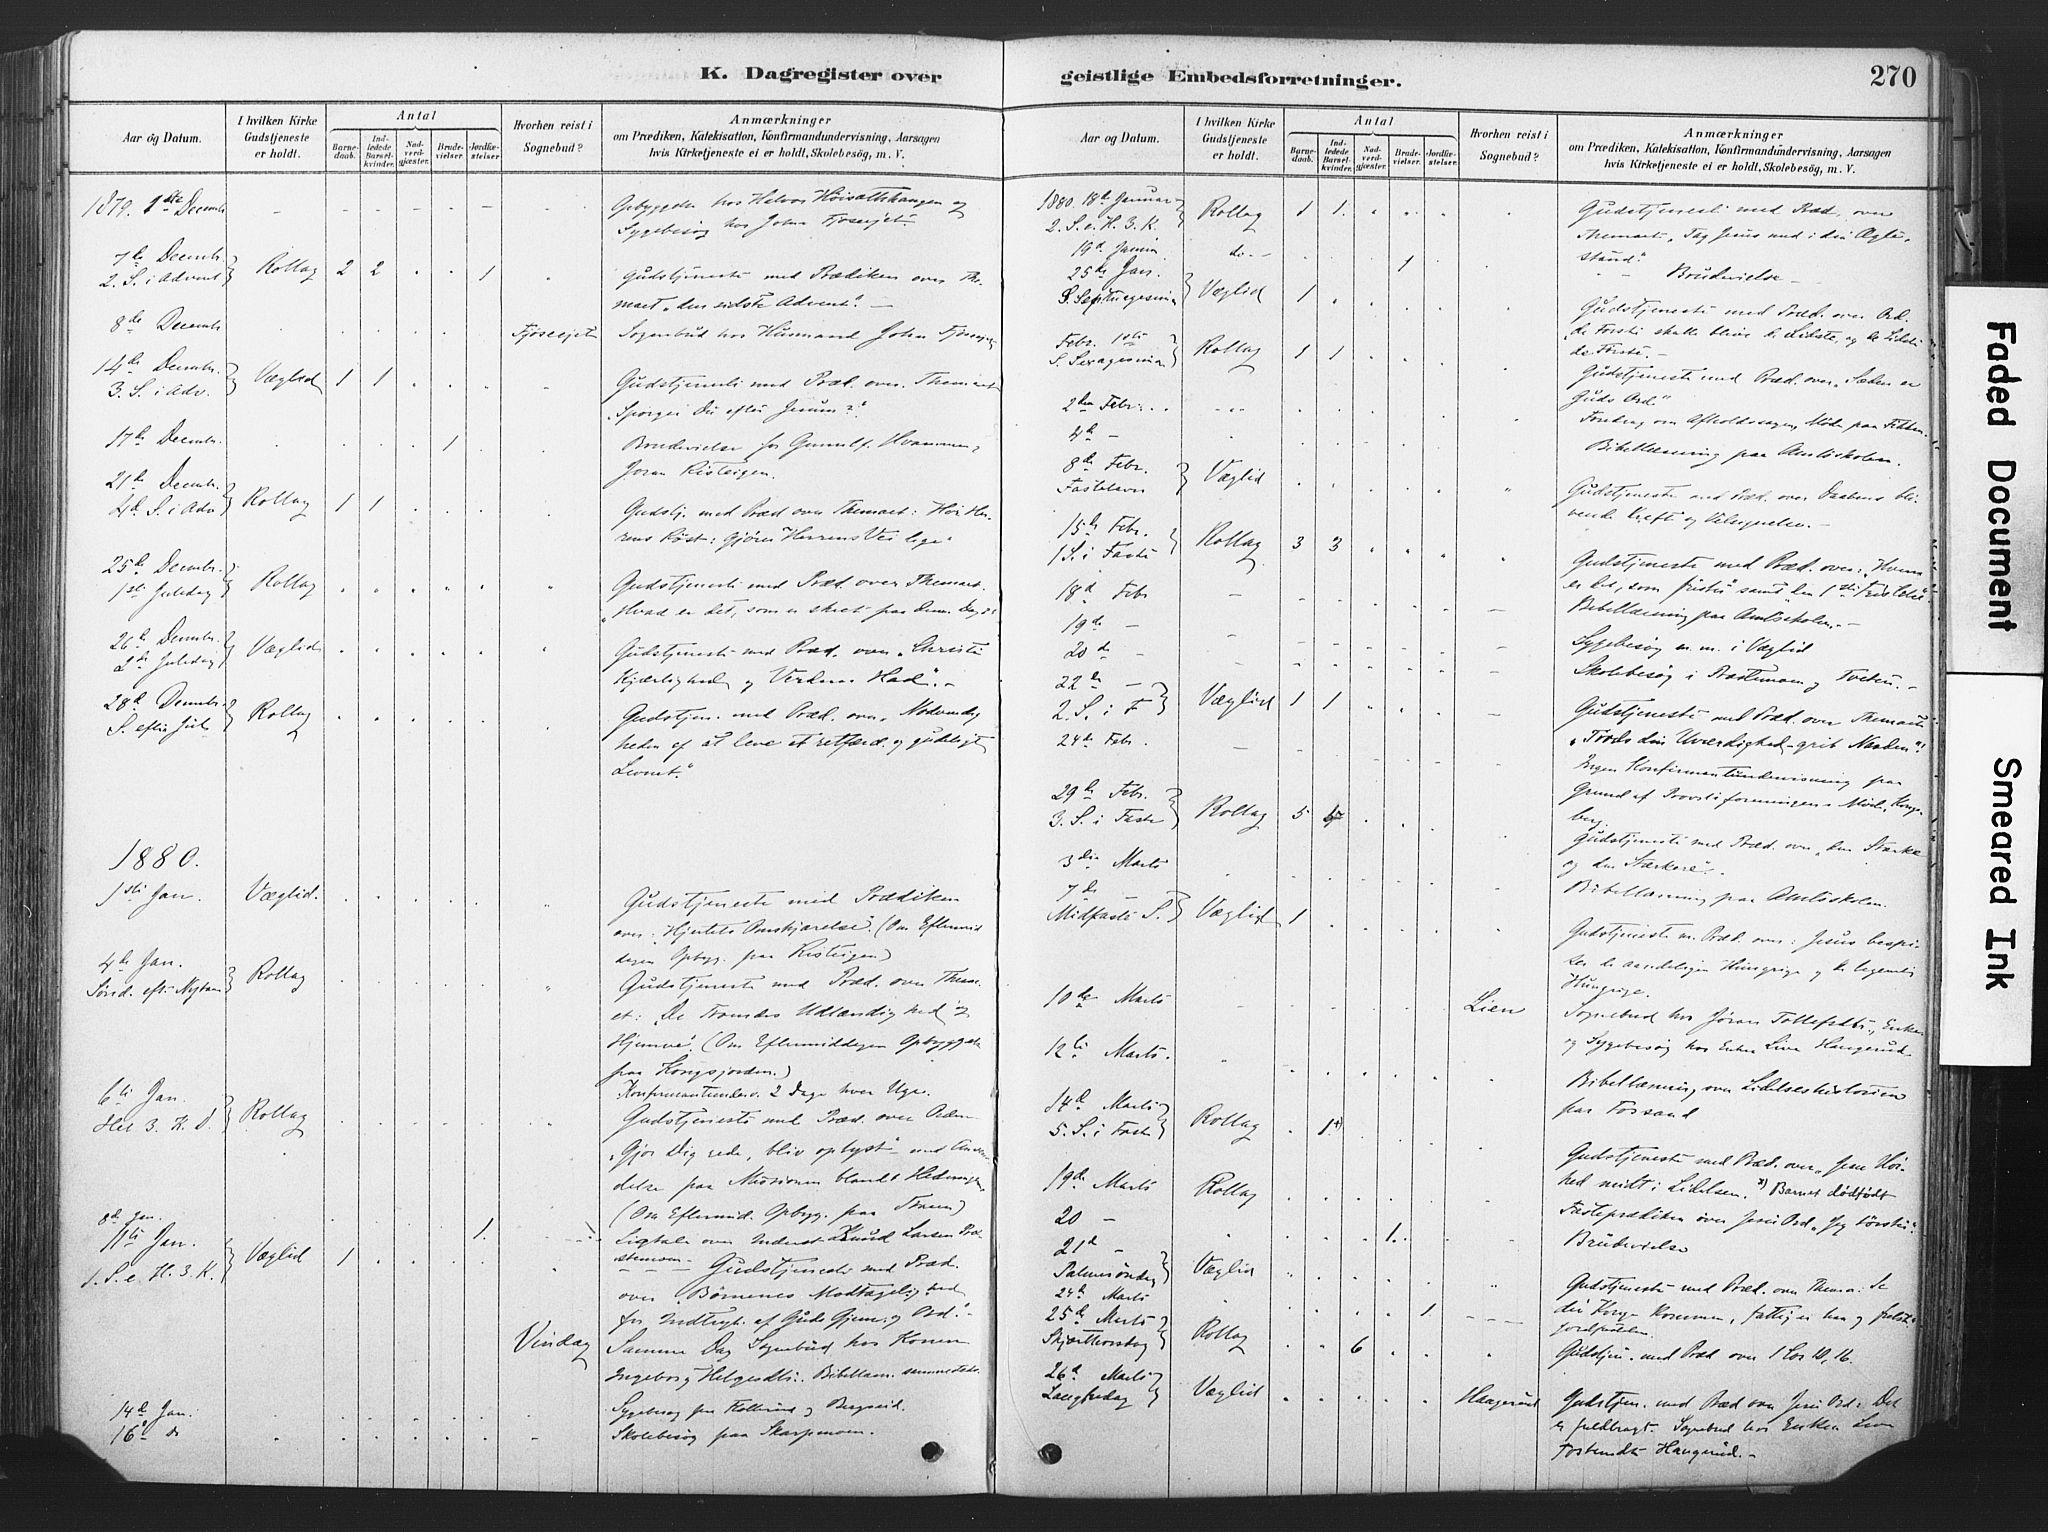 K. Dagregister over geistlige Embedsforretninger.
270
Aar og Datum.
I hvilken Kirke Gudstjeneste er holdt.
Antal
Barnedaab.
Indledede Barselkvinder.
Nadverdgjæster.
Brudevielser.
Jordfæstelser.
Hvorhen reist i Sognebud?
Anmærkninger
om Prædiken, Katekisation, Konfirmandundervisning, Aarsagen
hvis Kirketjeneste ei er holdt, Skolebesög, m. V.
1879. 1ste Decembr - - - - - - - Opbyggelse hos Helvor Höisætthaugen og
Sygebesög hos John Fjosejet
7de Decembr.
2. S. i Advent } Rollag 2 2 . . 1 Gudstjeneste med Prædiken over The-
maet „den sidste Advent". -
8de Decembr Fjosejet Sognebud hos Husmand John Fjosejet
14de Decembr.
3. S. i Adv. } Væglid 1 1 . . . Gudstjeneste med Præd. over Themaet
„Spörger Du efter Jesum?"
17de Decembr. . . . 1 Brudevielse for Gunulf Hvammen,
Joran Risteigen.
21de Decembr.
4de S. i Adv } Rollag 1 1 . . . Gudstj. med Præd over Themaet: Hör Her-
rens Röst: gjörer Herrens Vei lige"
25de Decembr.
1ste Juledag } Rollag . . . . . Gudstjeneste med Præd. over Themaet.
„Hvad er det, som er skeet paa denne Dag?"
26de Decembr.
2de Juledag } Væglid . . . . . Gudstjeneste med Præd. over „Christi
Kjærlighed og Verdens Had". -
28de Decembr.
S. efter Jul } Rollag . . . . . Gudstjen. med Præd. over „Nödvendig
heden af at leve et retfærd. og gudeligt
Levnet."
1880.
1ste Jan. Væglid. . . . . . Gudstjeneste med Prædiken
over: „Hjertets Omskjærelse". (Om Eftermid
dagen Opbyg. paa Risteigen)
4de Jan.
Sönd. efter Nytaar } Rollag . . . . . Gudstjeneste med Præd. over Thema-
et: „De Frommes Udlændighed og
Hjemve". (Om Eftermiddagen Opbyggelse
paa Kongsjorden.)
Konfirmantunderv. 2 Dage hver Uge.
6te Jan.
Hel. 3. K. D. } Rollag . . . . . Gudstjeneste med Præd over Ordene
„Gjör Dig rede, bliv oplyst" med Anven-
delse paa Missionen blandt Hedningene
(Om Eftermid. Opbyg. paa Traaen)
8de Jan. 1. Ligtale over Inderst Knud Larsen Tra-
stemoen -
11te Jan.
1. S. e. H. 3. K. } Væglid 1 . . . . Gudstjeneste med Præd.
over „Börnenes Modtagelighed
for Indtryk af Guds Gjern. og Ord." -
Vindeg Samme Dag Sognebud hos Konen
Ingeborg Helgesdtr. Bibellæsn. sammesteds.
14de Jan. . . . . . Sygebesög paa Kolterud og Bergseid.
16de do . . . . . Skolebesög paa Skarpmoen.
Aar og Datum.
I hvilken Kirke Gudstjeneste er holdt.
Antal
Barnedaab.
Indledede Barselkvinder.
Nadverdgjæster.
Brudevielser.
Jordfæstelser.
Hvorhen reist i Sognebud?
Anmærkninger
om Prædiken, Katekisation, Konfirmandundervisning, Aarsagen
hvis Kirketjeneste ei er holdt, Skolebesög, m. V.
1880. 18de Januar
2. S. e. H. 3. K. } Rollag 1 1. . . . Gudstjeneste med Præd. over
Themaet „Tag Jesus med i din Ægte-
stand."
19de Januar do - 1 - Brudevielse -
25de Jan.
S. Septuagesima } Væglid 1 . . . . Gudstjeneste med Præd. over Ord.
„de Förste skulle blive de Sidste, og de Sidste
de Förste. -
Febr. 1ste
S. Sexagesima } Rollag 1 1 . . . Gudstjeneste med Præd. over „Sæden er
Guds Ord."
2den Febr. . . Foredrag om Afholdssagen, Möde paa Fossan.
4de - Bibellæsning paa Amtsskolen.
8de Febr.
Fastelavn } Væglid . . . . . Gudstjeneste med Præd. over Daabens bli-
vende Kraft og Velsignelse.
15de Febr.
1 S. i Faste } Rollag 3 3 . . . Gudstjeneste med Præd. over: „Hvem
er det, som frister" samt den 1ste Fristelse"
18de Febr Bibellæsning paa Amtsskolen. -
19de - Sygebesög m. m. i Væglid
20de - Skolebesög i Trastemoen og Tveten. -
22de -
2. S. i F } Væglid 1 1 . . . Gudstjeneste med Præd. over Themaet:
„Trods din Uværdighed - grib Naaden"!
24de Febr. - Ingen Konfirmantundervisning paa
Grund af Provstiforeningens Möde, Kongs-
berg.
29de Febr.
3. S. i Faste } Rollag 5 . . . Gudstjeneste med Præd. over „den Stærke
og den Stærkere".
3die Marts Bibellæsning paa Amtsskolen.
7de
Midfaste S. } Væglid 1 . . . . Gudstjeneste m. Præd. over: Jesus bespi-
ser de aandeligen Hungrige og de legemlig
Hungrige.
10de Marts - Lien Sognebud hos Jöran Tollefsdtr., Enken
og Sygebesög hos Enken Live Haugerud
12te Marts. Bibellæsning over Lidelseshistorien
paa Forsand
14de Marts
5. S. i Faste } Rollag . 1 x) . . . Gudstjeneste med Præd. over „Jesu Höi-
hed midt i Lidelsen." x) Barnet dödfödt
19de Marts Rollag . . . . . Fasteprædiken over Jesu Ord „Jeg törster".
20 - 1. Brudevielse
21de -
Palmesöndag } Væglid . . . . . Gudstjeneste med Præd. over Thema: Se
din Konge kommer, fattig er han og frelst.
24de Marts 1 - - - Jordfæstelse.
25de Marts
Skjærthorsdag } Rollag . . 6 . . Gudstjen. med Præd over 1 Cor 10, 16.
26de Marts
Langfredag } Væglid . . . . . Haugerud Gudstjen. med Præd over Jesu Ord: Det
er fuldbragt. Sognebud hos Enken Live
Torstensdtr Haugerud. -
Faded Document
Smeared Ink